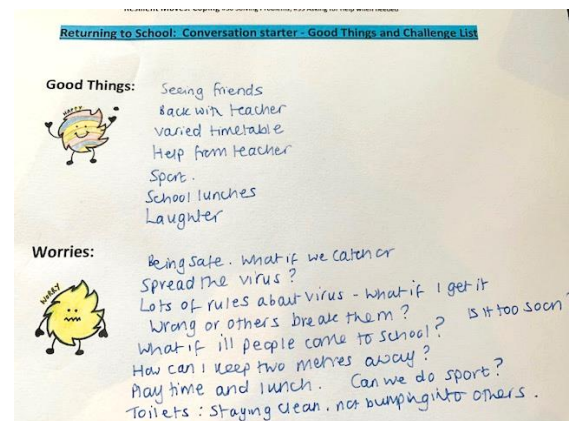 Resilient Moves: Coping #38 Solving Problems, #39 Asking for help when needed
Returning to School: Conversation starter - Good Things and Challenge List
Good Things:
HAPPY
Seeing friends
Back with teacher
varied timetable
Help from teacher
Sport.
School lunches
Laughter
Worries:
WORRY
Being safe. What if we catch or
spread the virus?
Lots of rules about virus - what if I get it
wrong or others break them?
Is it too soon?
What if ill people come to school?
How can I keep two metres away?
Play time and lunch. Can we do sport?
Toilets: Staying clean, not bumping into others.